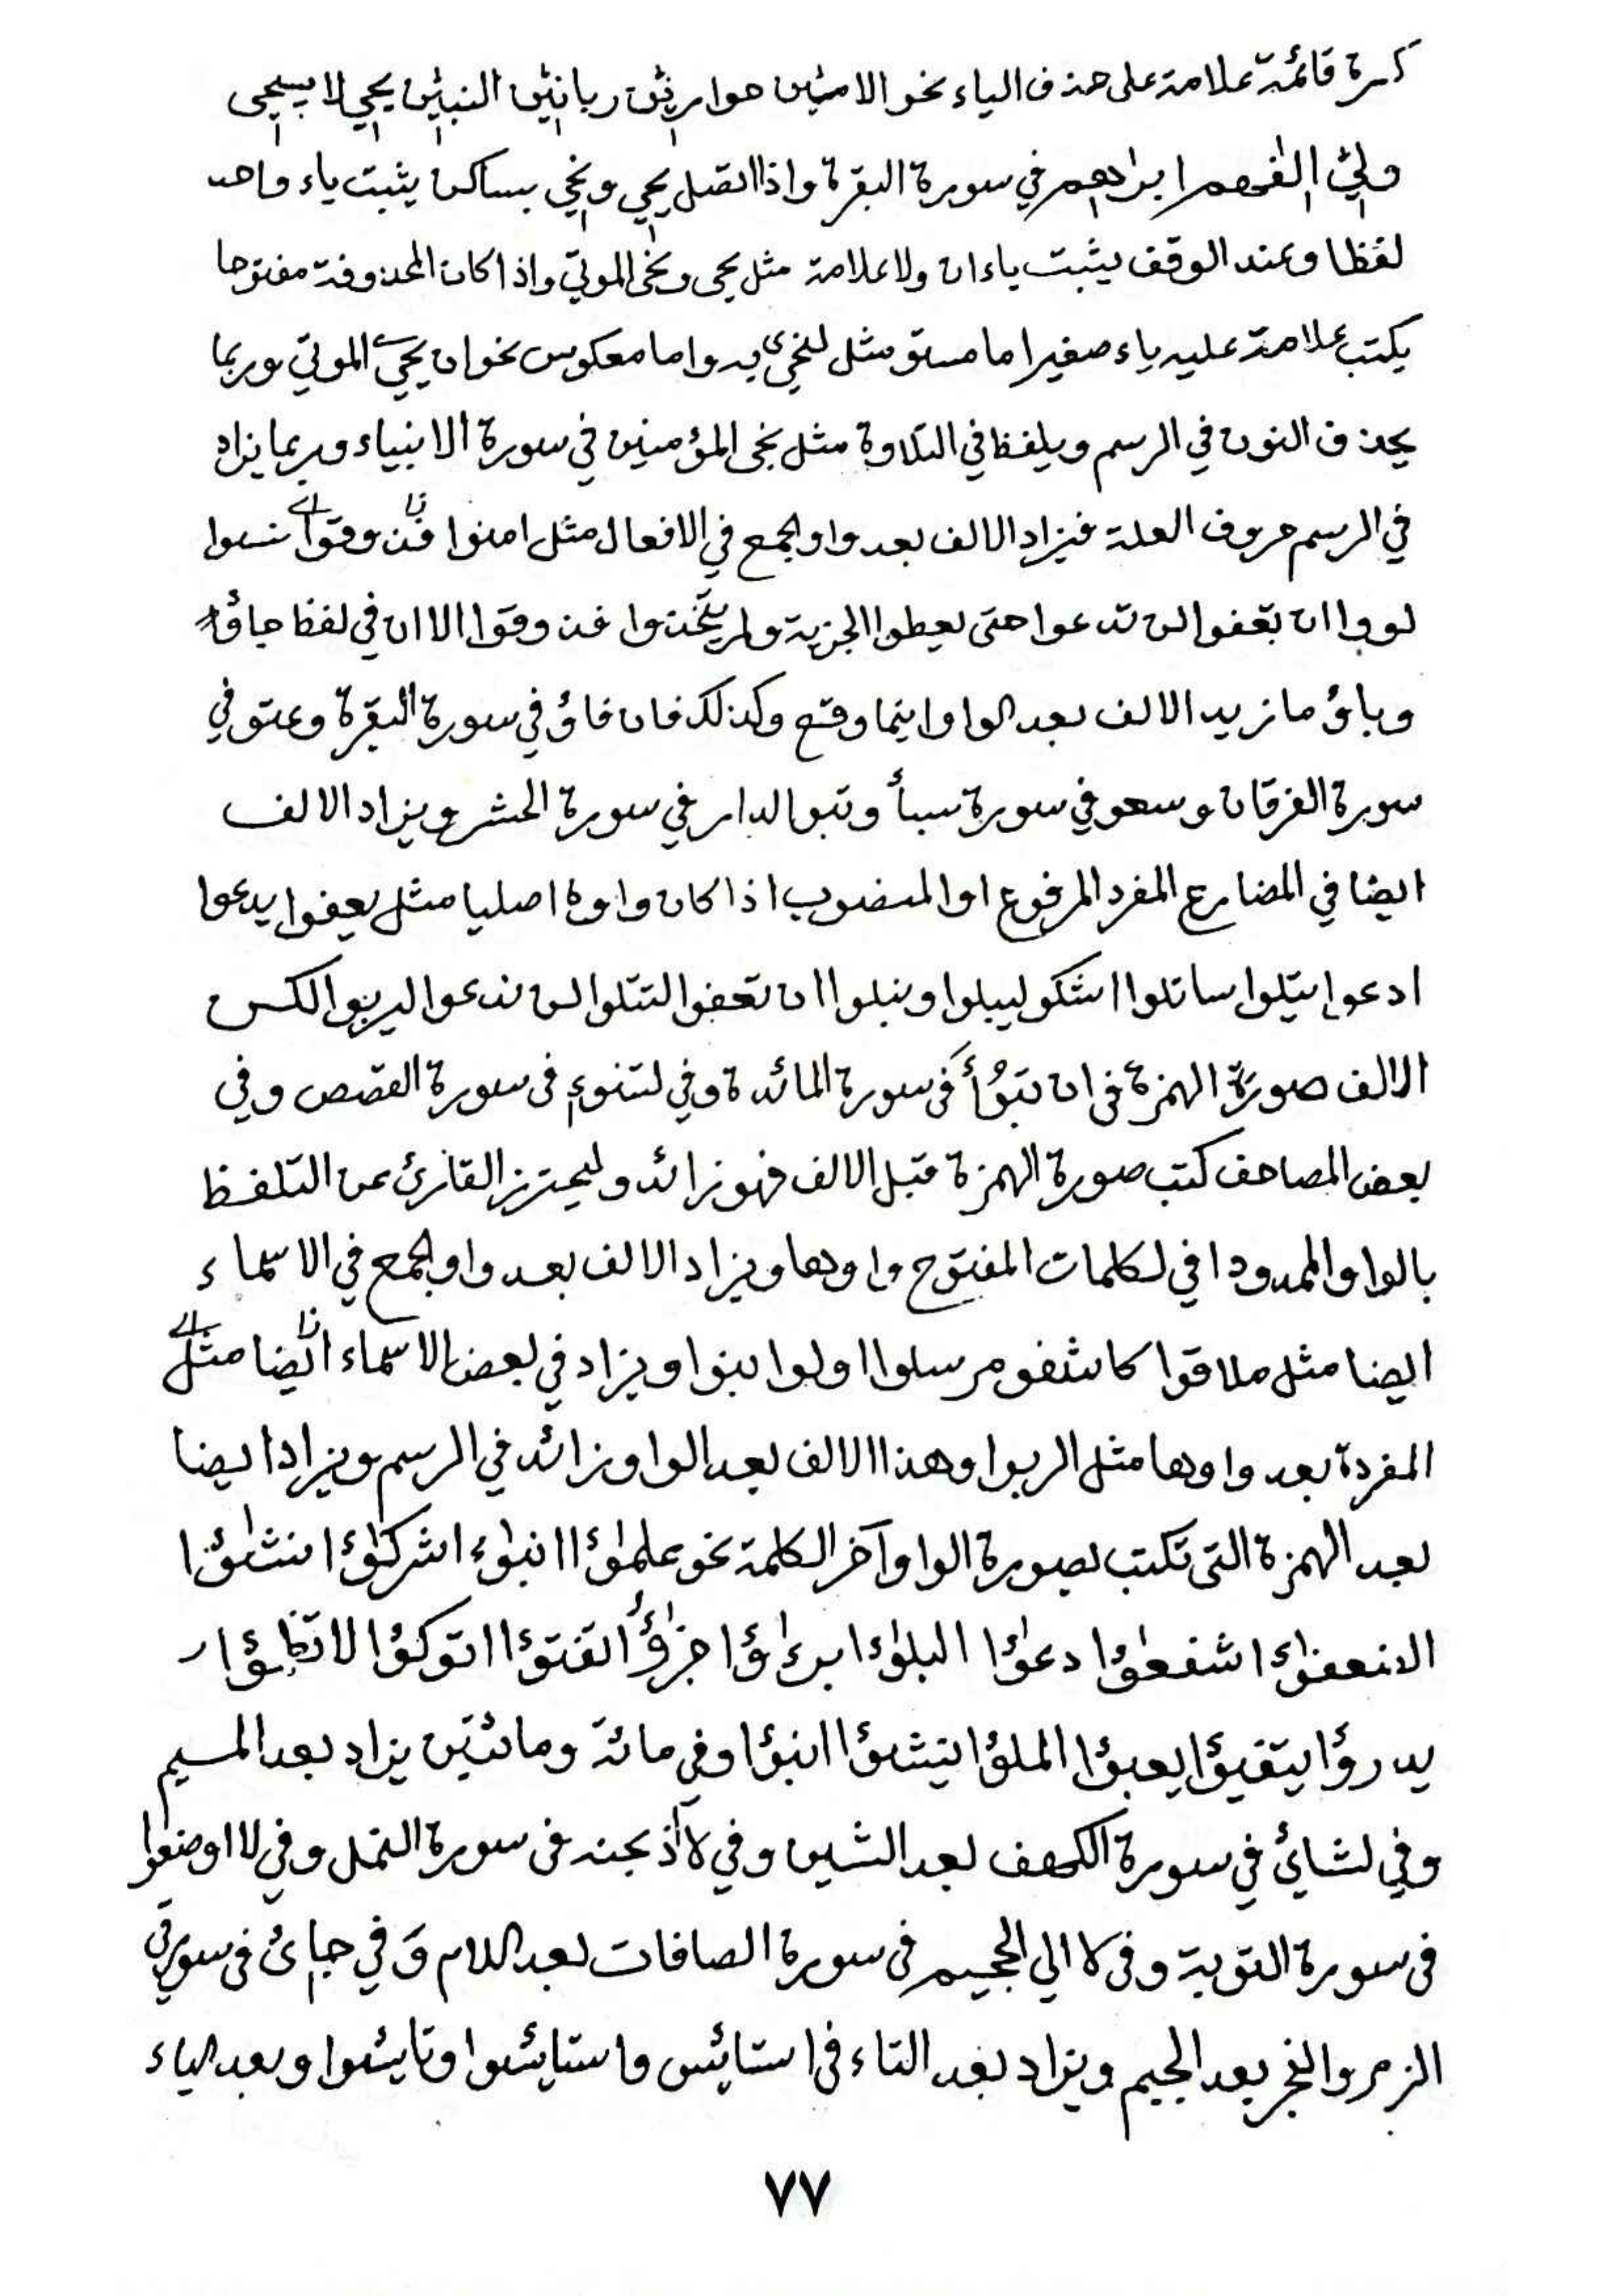 كسرة قائمة علامة على حذف الياء نحو الاميّن حواريّن ربانيّن النبيّن يحي لا يستحي
وليّ الفهم ابراهم في سورة البقرة واذا اتصل يحي ونحي بساكن يثبت ياء واحد
لفظا وعند الوقف يثبت ياءان ولا علامة مثل يحى ونحى الموتى واذا كان المحذوفة مفتوحا
يكتب علامة عليه ياء صغيرا ما مستو مثل لنحيۦ به واما معكوس نحو ان يحيے الموتى وربما
يحذف النون في الرسم ويلفظ في التلاوة مثل نجى المؤمنين في سورة الانبياء وربما يزاد
في الرسم حروف العلة فيزاد الالف بعد واو الجمع في الافعال مثل امنوا وقوا نسوا
لووا ان تعفوا لن تدعوا حتى يعطوا الجزية ولم يتخذوا وقوا الا ان في لفظ جاؤ
وباؤ ما زيد الالف بعد الواو اينما وقع وكذلك فان فاؤ في سورة البقرة وعتو في
سورة الفرقان وسعو في سورة سبأ وتبو الدار في سورة الحشر ويزاد الالف
ايضا في المضارع المفرد المرفوع او المنصوب اذا كان واوه اصليا مثل يعفوا يدعوا
ادعوا يتلوا ساتلوا اشكو ليبلوا ونبلوا ان تعفوا لتتلوا لن ندعوا ليربوا لكن
الالف صورة الهمزة في ان تبوأ في سورة المائدة وفي لتنوء في سورة القصص وفي
بعض المصاحف كتب صورة الهمزة قبل الالف فهو زائد وليحترز القارئ عن التلفظ
بالواو الممدودا في لكلمات المفتوح واوها ويزاد الالف بعد واو الجمع في الاسماء
ايضا مثل ملاقوا كاشفو مرسلوا اولوا بنوا ويزاد في بعض الاسماء ايضا مثل
المفردة بعد واوها مثل الربوا وهذا الالف بعد الواو زائد في الرسم ويزاد ايضا
بعد الهمزة التى تكتب بصورة الواو آخر الكلمة نحو علمٰؤا انبٰؤا شركٰؤا نشٰؤا
الضعفٰؤا شفعٰؤا دعٰؤا البلٰؤا برءٰؤا جزٰؤا تفتؤا اتوكؤا لا تظمؤا
يدرؤا يتفيؤا يعبؤا الملؤا ينشؤا نبؤا وفي مائة ومائتين يزاد بعد الميم
وفي لشائ في سورة الكهف بعد الشين وفي لااذبحنه في سورة النمل وفي لااوضعوا
فى سورة التوبة وفى لاالي الجحيم فى سورة الصافات بعد اللام وَفي جاىٔ فى سورتي
الزمر والفجر بعد الجيم ويزاد بعد التاء فى استايئس واستايئسوا وتايئسوا وبعد الياء
٧٧